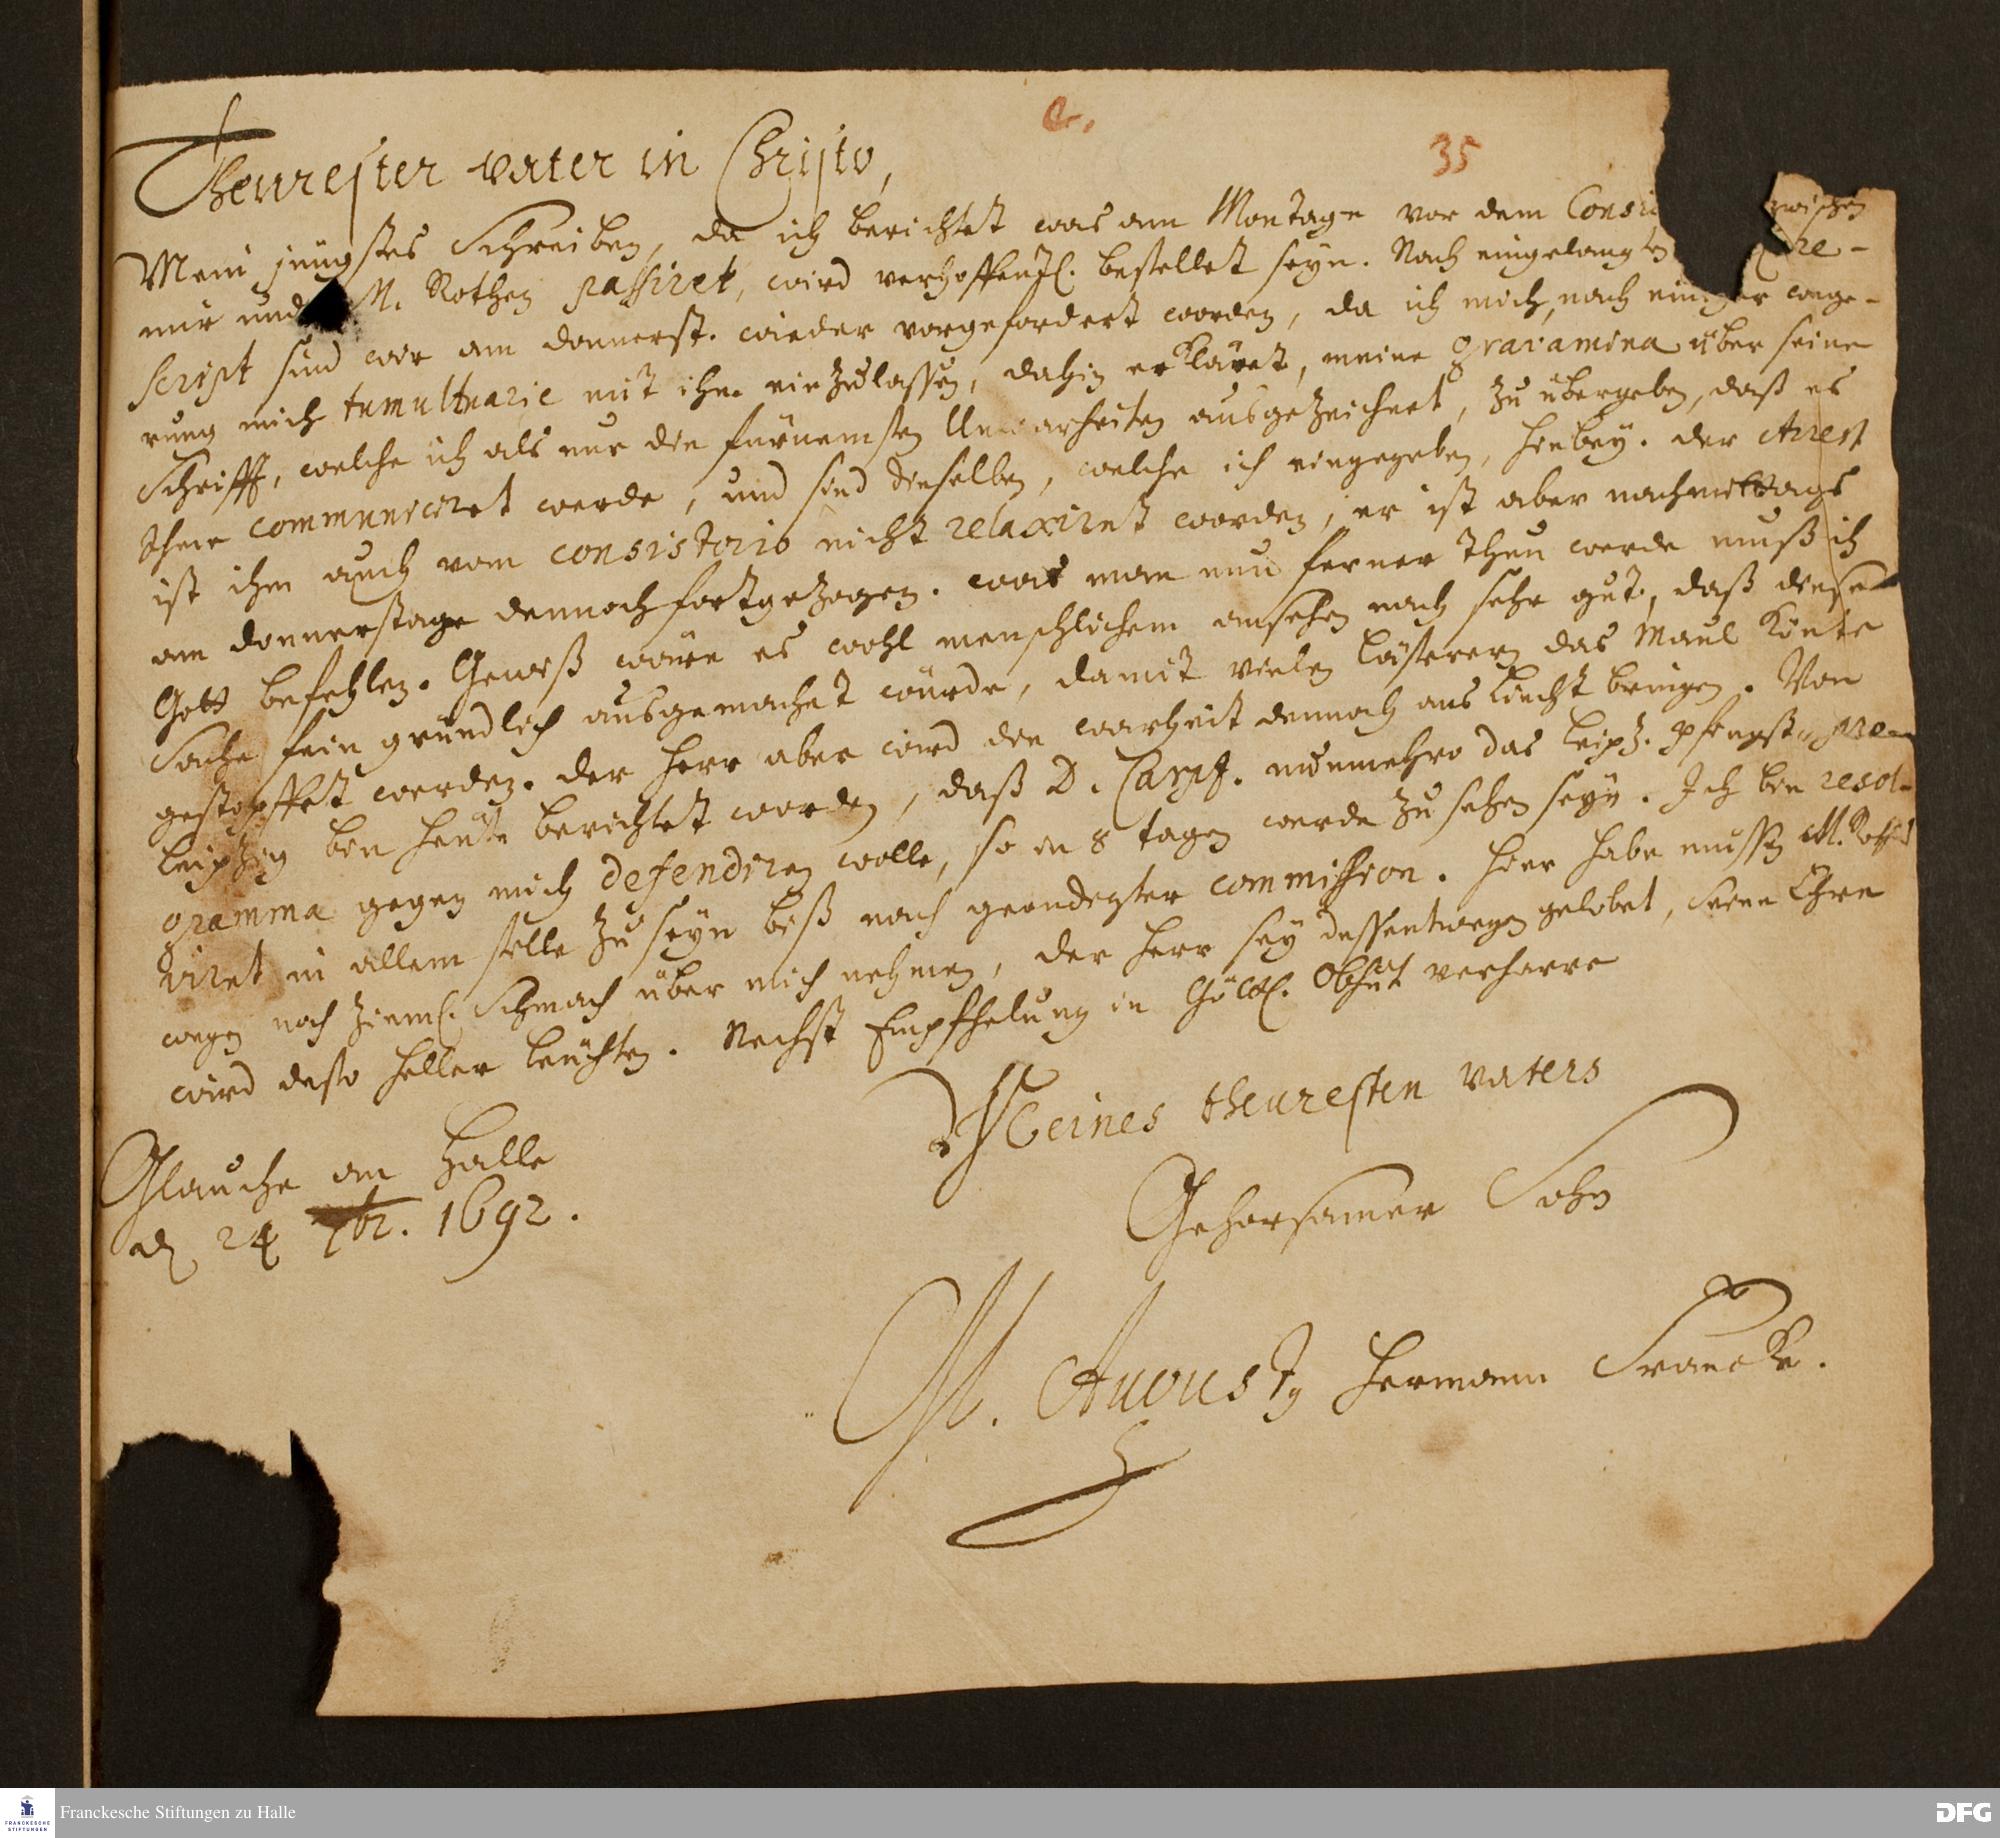 e.
35
Theurester vater in Christo,
Mein jüngstes Schreiben, da ich berichtet was am Montage vor dem Consi zwischen
mir und M. Rothen passiret, wird verhoffentl. bestellet seyn. Nach eingelangten Re-
script sind wir am donnerst. wieder vorgefordert worden, da ich mich, nach einiger wege-
rung mich tumultuarie mit ihm einzulassen, dahin erkläret, meine gravamina über seine
Schrifft, welche ich als nur die fürnemsten Unwarheiten ausgezeichnet, zu übergeben, daß es
Ihme communiciret werde, und sind dieselben, welche ich eingegeben, hiebey. der Arrest
ist ihm auch vom consistorio nicht relaxiret worden, er ist aber nachmittags
am donnerstage dennoch fortgezogen. was man nun ferner thun werde muß ich
Gott befehlen. Gewiß wäre es wohl menschlichem ansehen nach sehr gut, daß diese
Sache fein gründlich ausgemachet würde, damit vielen Lästerern das Maul könte
gestopffet werden. der Herr aber wird die warheit dennoch ans Liecht bringen. Von
Leipzig bin heute berichtet worden, daß D. Carpz. nunmehro das Leipz. Pfingst-pro-
gramma gegen mich defendiren wolle, so in 8 tagen werde zu sehen seyn. Ich bin resol-
viret in allem stille zu seyn biß nach geendigter commission. Hier habe müssen M. Roths
wegen noch zieml. Schmach über mich nehmen, der Herr sey deßentwegen gelobet, seine Ehre
wird desto heller leuchten. Nechst Empfhelung in Göttl. Obhut verharre
Meines theuresten vaters
Glauche an Halle
d 24 7br. 1692.
Gehorsamer Sohn
M. August Hermann Francke.
Franckesche Stiftungen zu Halle
FRANCKESCHE
STIFTUNGEN
DFG